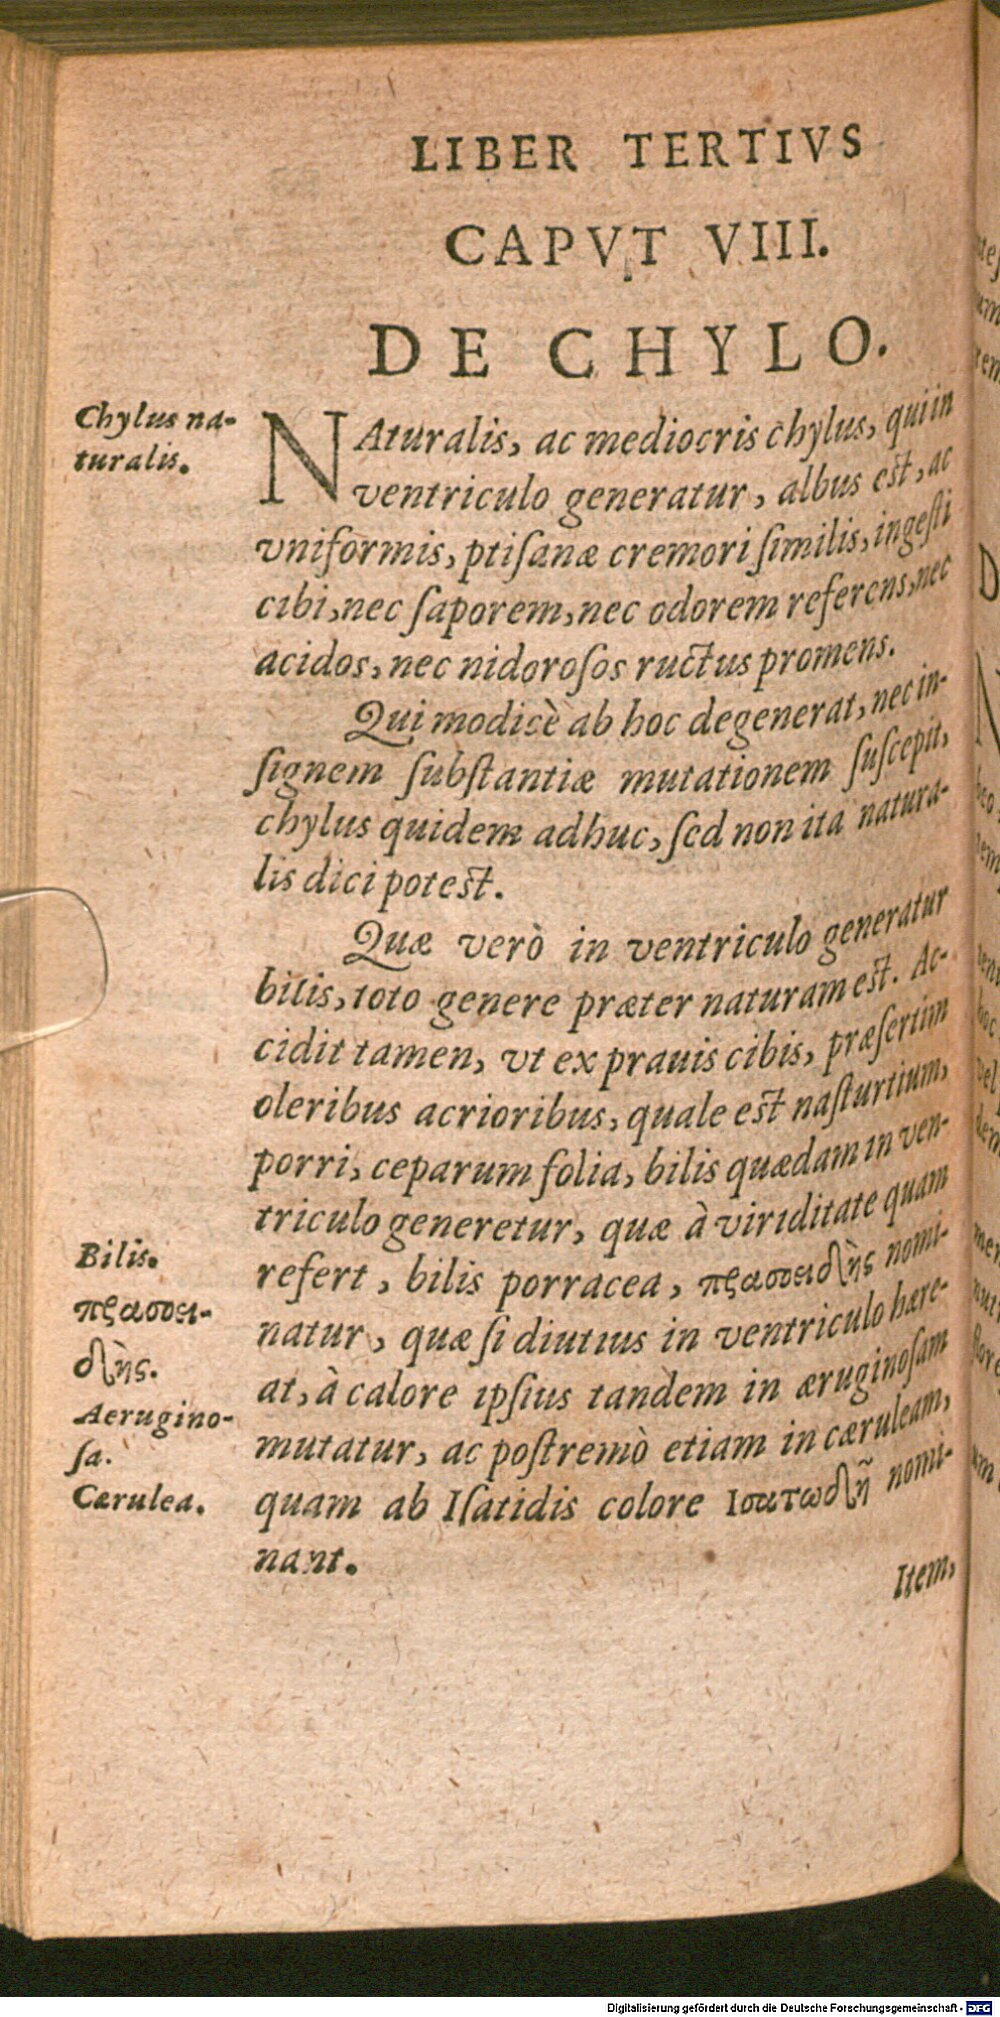 LIBER TERTIVS
CAPVT VIII.
DE CHYLO.
Chylus na-
turalis.
NAturalis, ac mediocris chylus, qui in
ventriculo generatur, albus est, ac
vniformis, ptiſanæ cremori ſimilis, ingeſti
cibi, nec ſaporem, nec odorem referens, nec
acidos, nec nidoroſos ructus promens.
Qui modicè ab hoc degenerat, nec in-
ſignem ſubſtantiæ mutationem ſuſcepit,
chylus quidem adhuc, ſed non ita natura-
lis dici potest.
Quæ verò in ventriculo generatur
bilis, toto genere præter naturam est. Ac-
cidit tamen, vt ex prauis cibis, præſertim
oleribus acrioribus, quale est naſturtium,
porri, ceparum folia, bilis quædam in ven-
triculo generetur, quæ à viriditate quam
refert, bilis porracea, πρασοειδὴς nomi-
natur, quæ ſi diutius in ventriculo hære-
at, à calore ipſius tandem in æruginoſam
mutatur, ac poſtremò etiam in cæruleam,
quam ab Iſatidis colore Ισατωδῆ nomi-
nant.
Bilis.
πρασοει-
δὴς.
Aerugino-
ſa.
Cærulea.
Item,
Digitalisierung gefördert durch die Deutsche Forschungsgemeinschaft - DFG